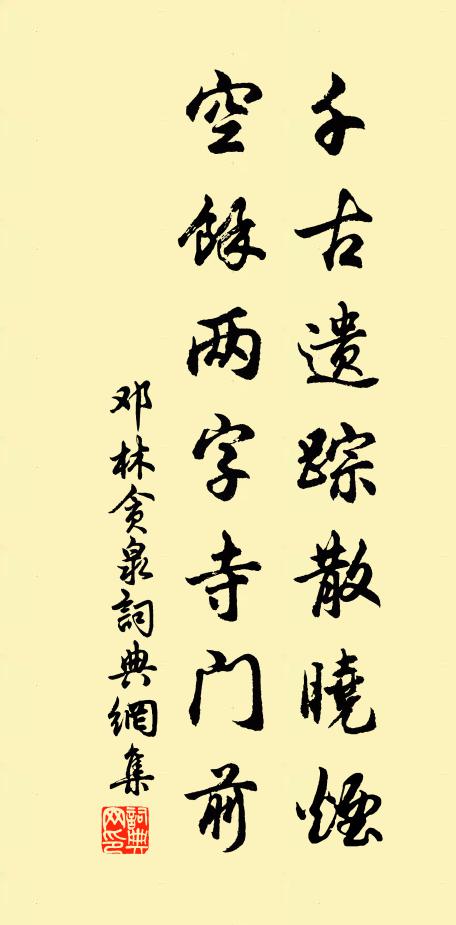 千古遗踪散曉煙
空餘两字寺门前
邓林贪泉詞典網集
詞典网印